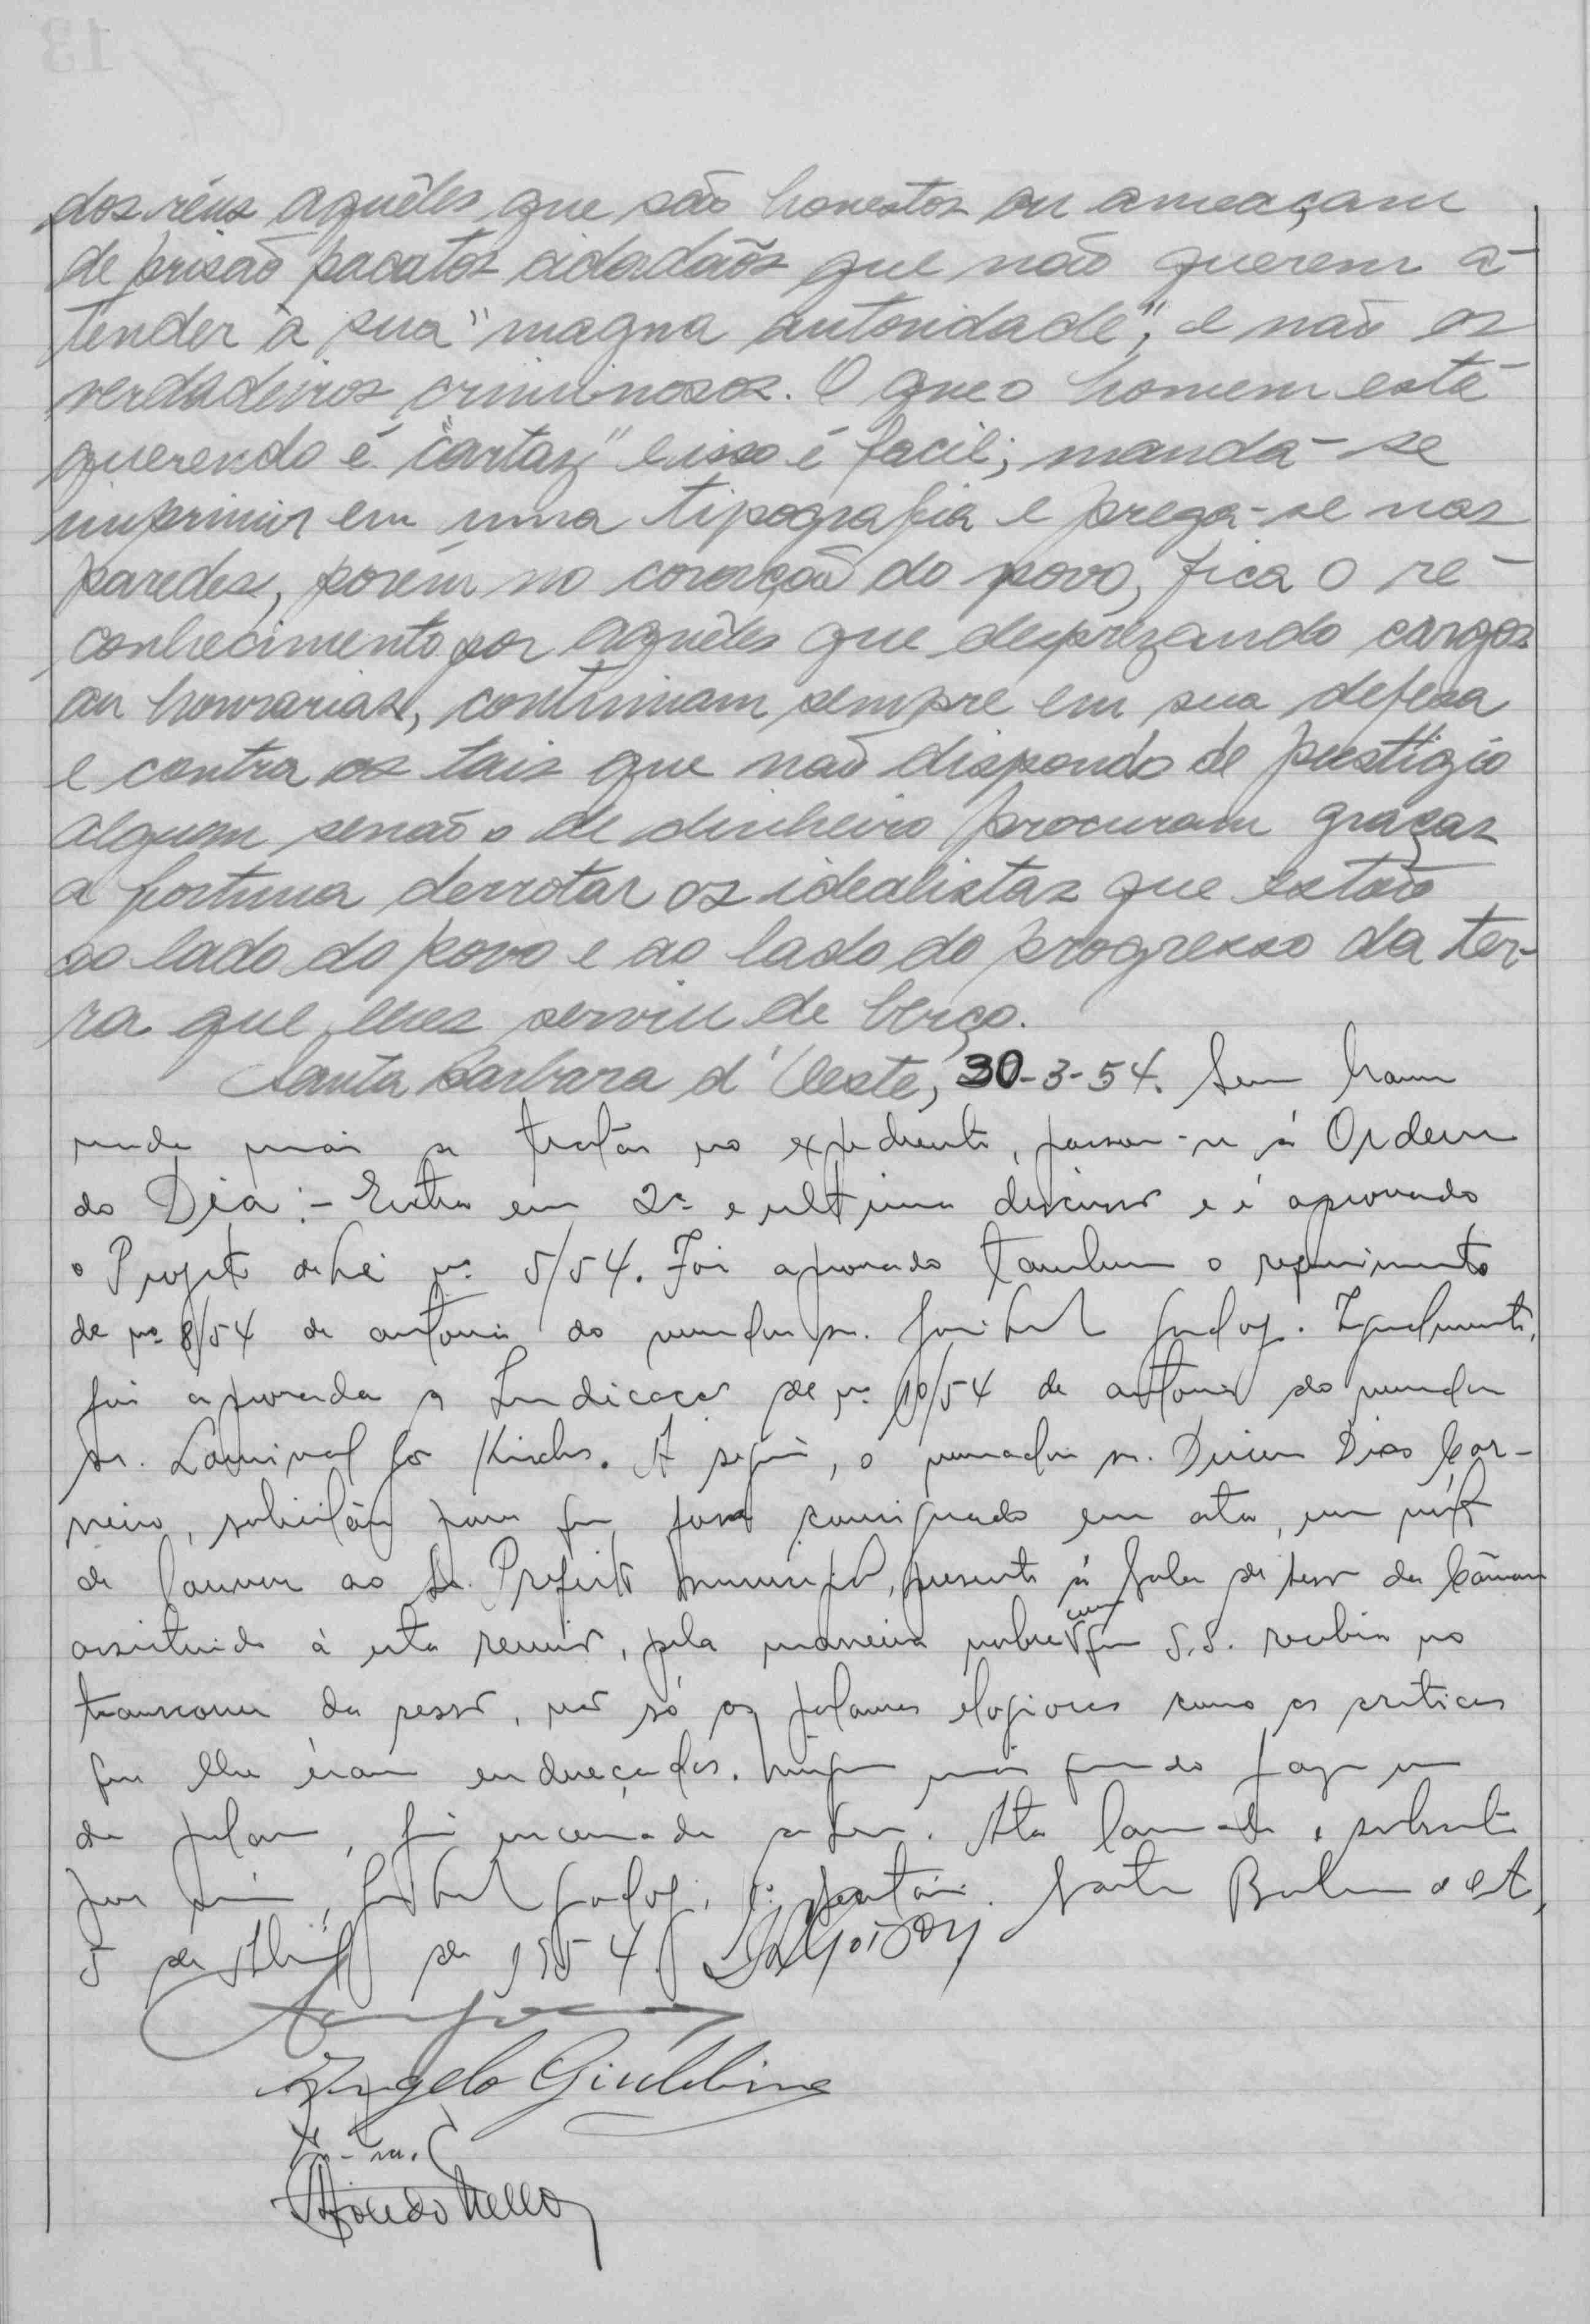 dos réus aquêles que são honestos ou ameaçam
de prisão pacatos cidadãos que não querem a-
tender à sua "magna autoridade", e não os
verdadeiros criminosos. O que o homem está
querendo é "cartaz" e isso é facil; manda-se
imprimir em uma tipografia e prega-se nas
paredes, porém no coração do povo, fica o re-
conhecimento por aquêles que desprezando cargos
ou honrarias, continuam sempre em sua defesa
e contra os tais que não dispondo de prestígio
algum senão o de dinheiro procuram graças
a fortuna derrotar os idealistas que estão
ao lado do povo e ao lado do progresso da ter-
ra que lhes serviu de berço.
Santa Barbara d'Oeste, 30-3-54. Sem haver
nada mais a tratar no expediente, passou-se à Ordem
do Dia:- Entra em 2ª e ultima discussão e é aprovado
o Projeto de Lei nº 5/54. Foi aprovado tambem o requerimento
de nº 8/54 de autoria do vereador sr. Godoy. Igualmente,
foi aprovada a Indicação de nº 10/54 de autoria do vereador
sr. A seguir, o vereador sr. Dirceu Dias Car-
neiro, para que fosse consignado em ata, um voto
de louvor ao Sr. Prefeito Municipal, presente à Sala de sessão da Câmara
assistindo à esta reunião, pela maneira nobre com que S.S. recebia no
transcorrer da sessão, não só as palavras elogiosas como as criticas
que lhe eram endereçadas. Ninguem mais querendo fazer uso
da palavra, foi encerrada a sessão. Ata lavrada e subscrita
por mim, Godoy, 1º Secretário. Santa Barbara d'Oeste,
5 de Abril de 1954
Angelo Giubbina
Toledo Mello